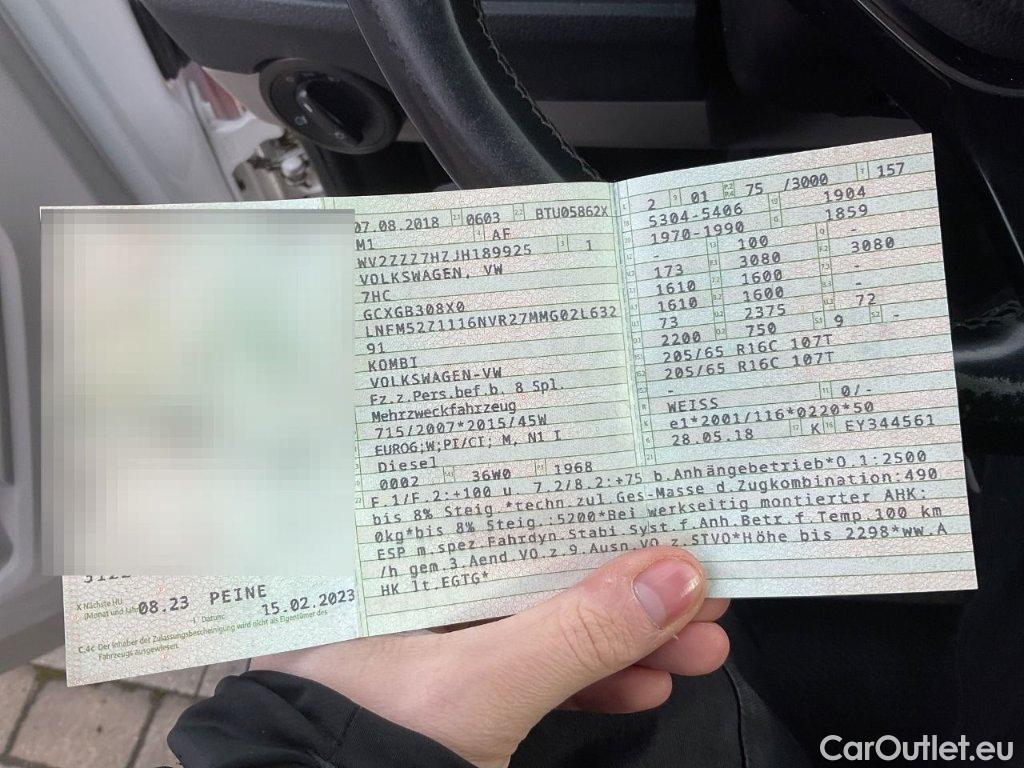 07.08.2018 0603 BTU05862X
M1 AF
WV2ZZZ7HZJH189925 1
VOLKSWAGEN, VW
7HC
GCXGB308X0
LNFM52Z1116NVR27MMG02L632
91
KOMBI
VOLKSWAGEN-VW
Fz.z.Pers.bef.b. 8 Spl.
Mehrzweckfahrzeug
715/2007*2015/45W
EURO6;W;PI/CI; M, N1 I
Diesel
0002 36W0 1968
2 01 75 /3000 157
5304-5406 1904
1970-1990 1859
- 100 -
173 3080 3080
1610 1600 -
1610 1600 -
73 2375 72
2200 750 9 -
205/65 R16C 107T
205/65 R16C 107T
-
WEISS 0/-
e1*2001/116*0220*50
28.05.18 K EY344561
F.1/F.2:+100 u. 7.2/8.2:+75 b.Anhängebetrieb*O.1:2500
bis 8% Steig.*techn.zul Ges-Masse d.Zugkombination:490
0kg*bis 8% Steig.:5200*Bei werkseitig montierter AHK:
ESP m.spez.Fahrdyn.Stabi.Syst.f.Anh.Betr.f.Temp.100 km
/h gem.3.Aend.VO.z.9.Ausn.VO.z.STVO*Höhe bis 2298*ww.A
HK lt.EGTG*
X Nächste HU
(Monat und Jahr) 08.23 PEINE
I Datum: 15.02.2023
C.4c Der Inhaber der Zulassungsbescheinigung wird nicht als Eigentümer des
Fahrzeugs ausgewiesen.
CarOutlet.eu